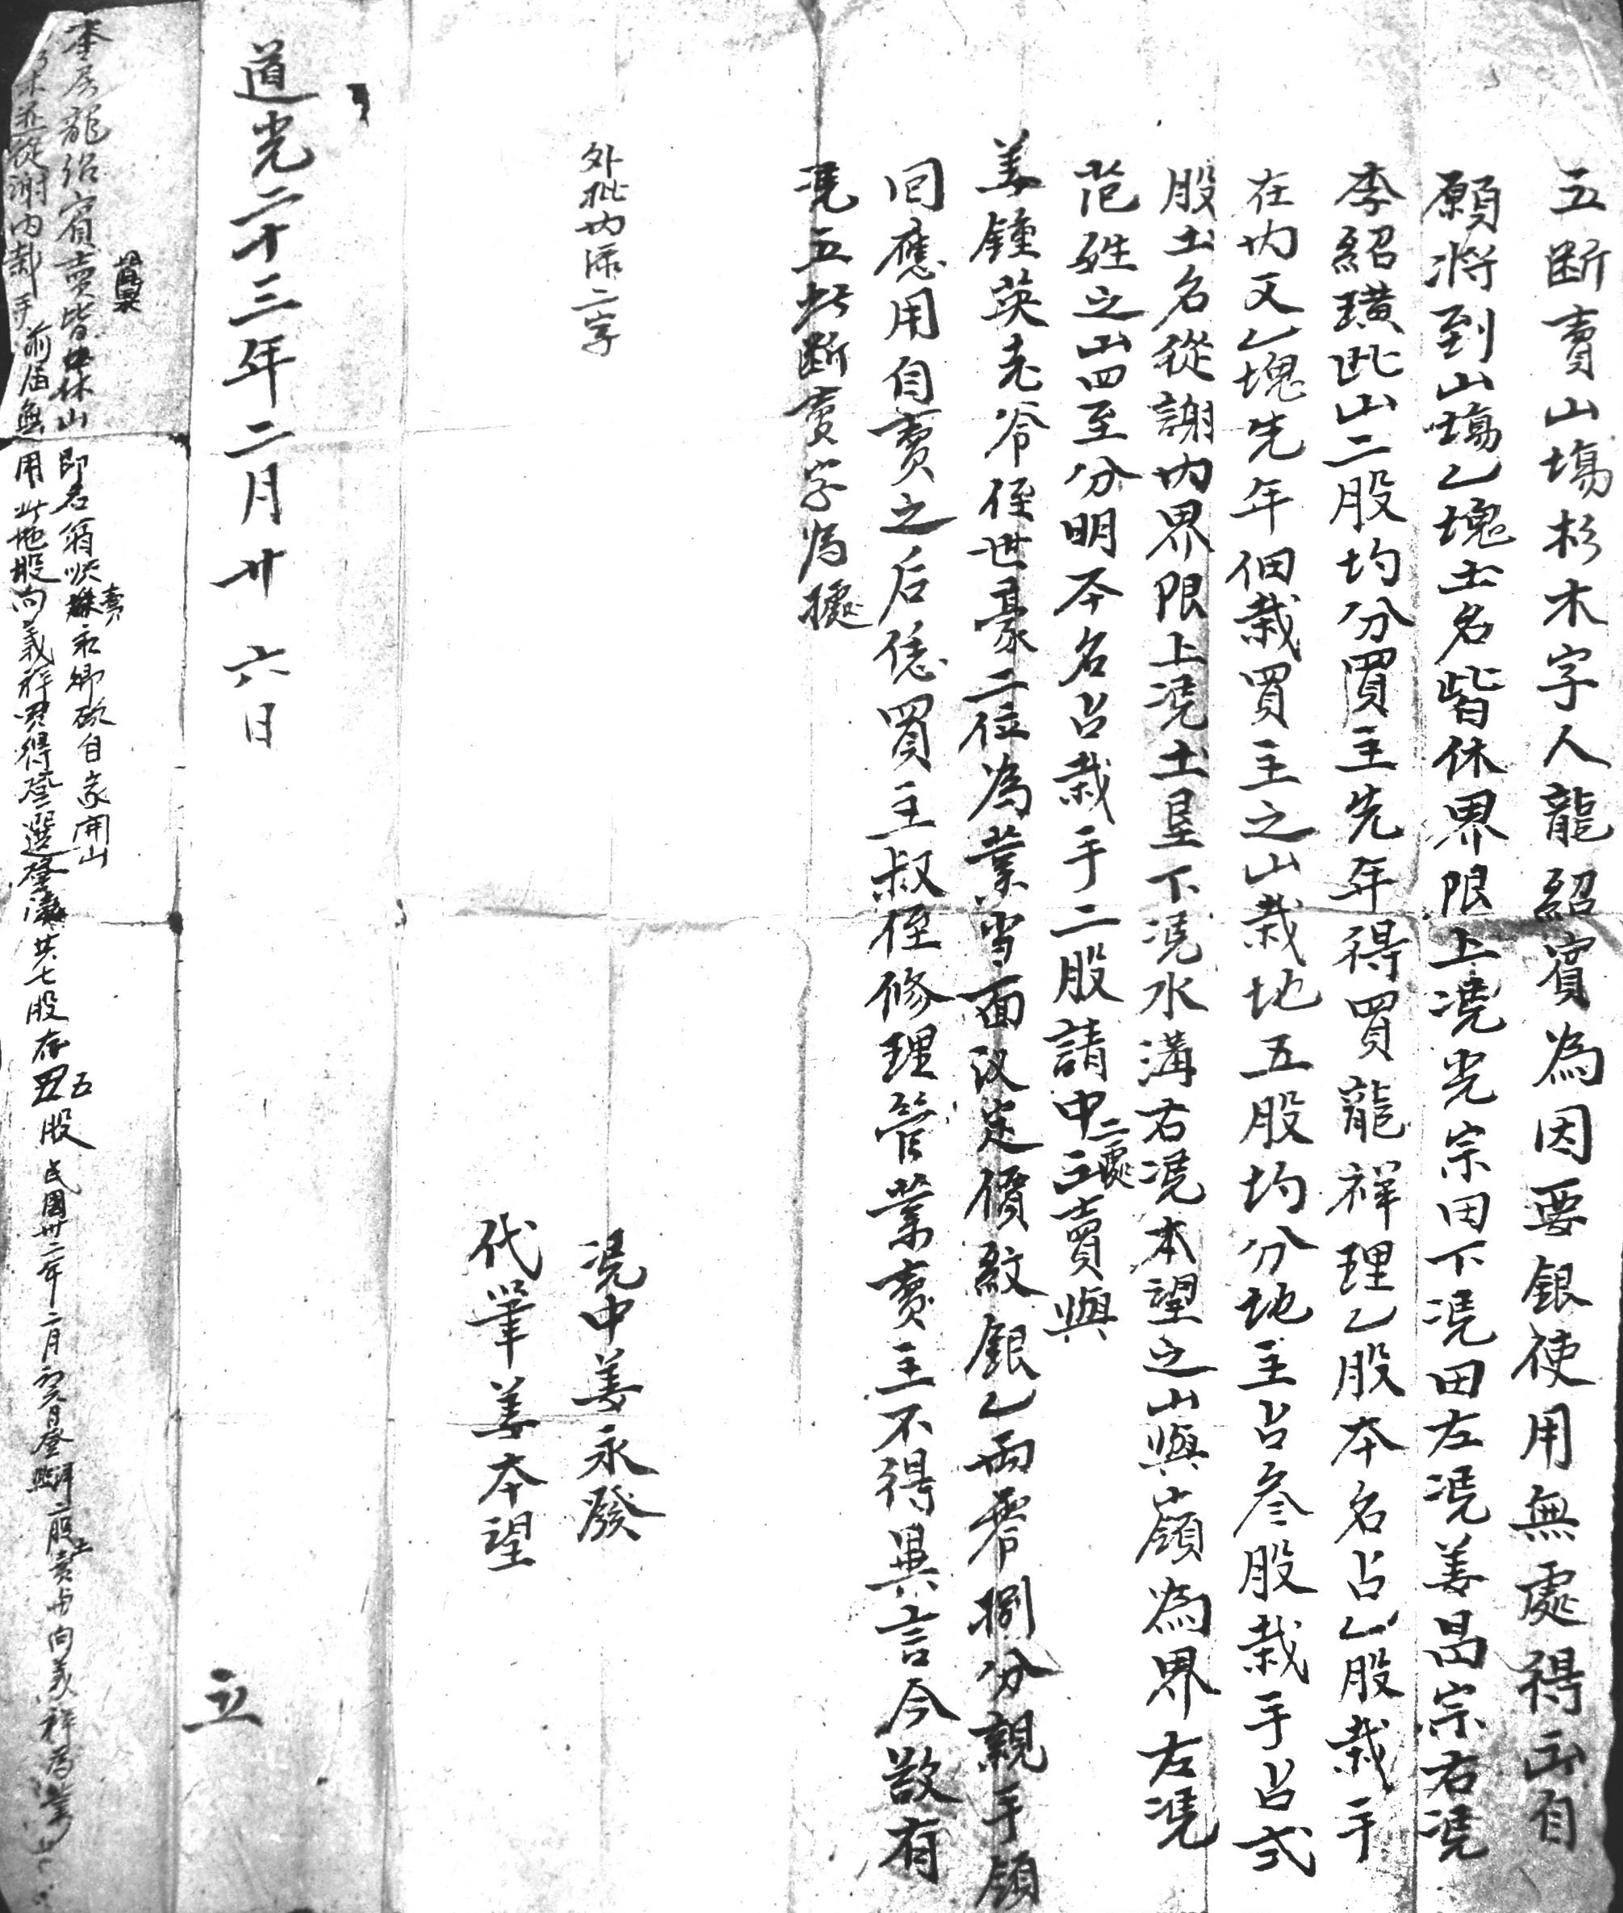 立断賣山塲杉木字人龍紹賓為因要銀使用無處得出自
願将到山塲乙塊土名皆休界限上凴光宗田下凴田左凴姜昌宗右凴
李紹璜此山二股均分買主先年得買龍祥理乙股本名占乙股栽手
在内又乙塊先年佃栽買主之山栽地五股均分地主占叁股栽手占弍
股土名從謝内界限上凴土垦下凴水溝右凴本望之山與嶺為界左凴
范姓之山四至分明今本名占栽手二股請中二處出賣與
姜鍾英老爷侄世豪二位為業当面议定價紋銀乙両零捌分親手領
回應用自賣之后恁買主叔侄修理管業賣主不得異言今欲有
凴立此断賣字為據
外批内添二字
凴中姜永發
代筆姜本望
道光二十三年二月廿六日 立
龍紹賓賣皆休山 即名翁 賣 永卿砍自家開山
從謝内栽手前届無用此地股向義祥買得登選登 共七股存五股民國卅二年二月初 日登 二股賣与向義祥為業